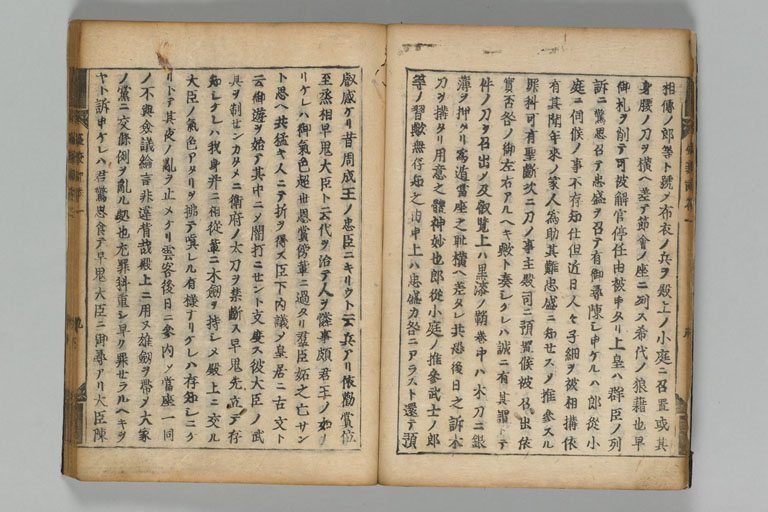 相傳ノ郎等ト號メ布衣ノ兵ヲ殿上ノ小庭ニ召置或其
身腰ノ刀ヲ横ヘ差テ節會ノ座ニ列ス希代ノ狼藉也早
御札ヲ削テ可被解官停任由被申タリ上皇ハ群臣ノ列
訴ニ驚思召テ忠盛ヲ召テ有御尋陳シ申ケルハ郎從小
庭ニ伺候ノ事不存知仕但近日人々子細ヲ被相搆依
有其聞年來ノ家人為助其難忠盛ニ知セスメ推參スル
罪科可有聖斷次ニ刀ノ事主殿司ニ預置候被召出依
實否咎ノ御左右アルヘキ歟ト奏シケレハ誠ニ有其謂トテ
件ノ刀ヲ召出メ及叡覽上ハ黒漆ノ鞘卷中ハ木刀ニ銀
薄ヲ押タリ為遁當座之耻横ヘ差タレ共恐後日之訴木
刀ヲ搆タリ用意之體神妙也郎從小庭ノ推參武士ノ郎
等ノ習歟無存知之由申上ハ忠盛カ咎ニアラスト還テ預
叡感ケリ昔周成王ノ忠臣ニキリウト云兵アリ依勸賞位
至丞相早鬼大臣ト云代ヲ治テ人ヲ
リケレハ御氣色超世恩賞傍輩ニ過タリ羣臣妬之亡サン
ト思ヘ共猛キ人ニテ折ヲ得ス臣下内議メ皇居ニ古文ト
云御遊ヲ始テ其中ニメ闇打ニセント支度ス彼大臣ノ武
具ヲ制センカタメニ衛府ノ太刀ヲ禁斷ス早鬼先立テ存
知シケレハ我身并ニ相從輩ニ木劔ヲ持シメ殿上ニ交ル
大臣ノ氣色アタリヲ拂テ嗔レル有様ナリケレハ存知シニケ
リトテ其夜ノ亂ヲ止メケリ雲客後日ニ參内ノ當座一同
ノ不與僉議綸言非違背哉殿上ニ用ヌ雄劔ヲ帶メ大家
ノ黨ニ交條例ヲ亂ル處也尤罪科重シ早ク罪セラルヘキヲ
ヤト訴申ケレハ君驚思食テ早鬼大臣ニ御尋アリ大臣陳